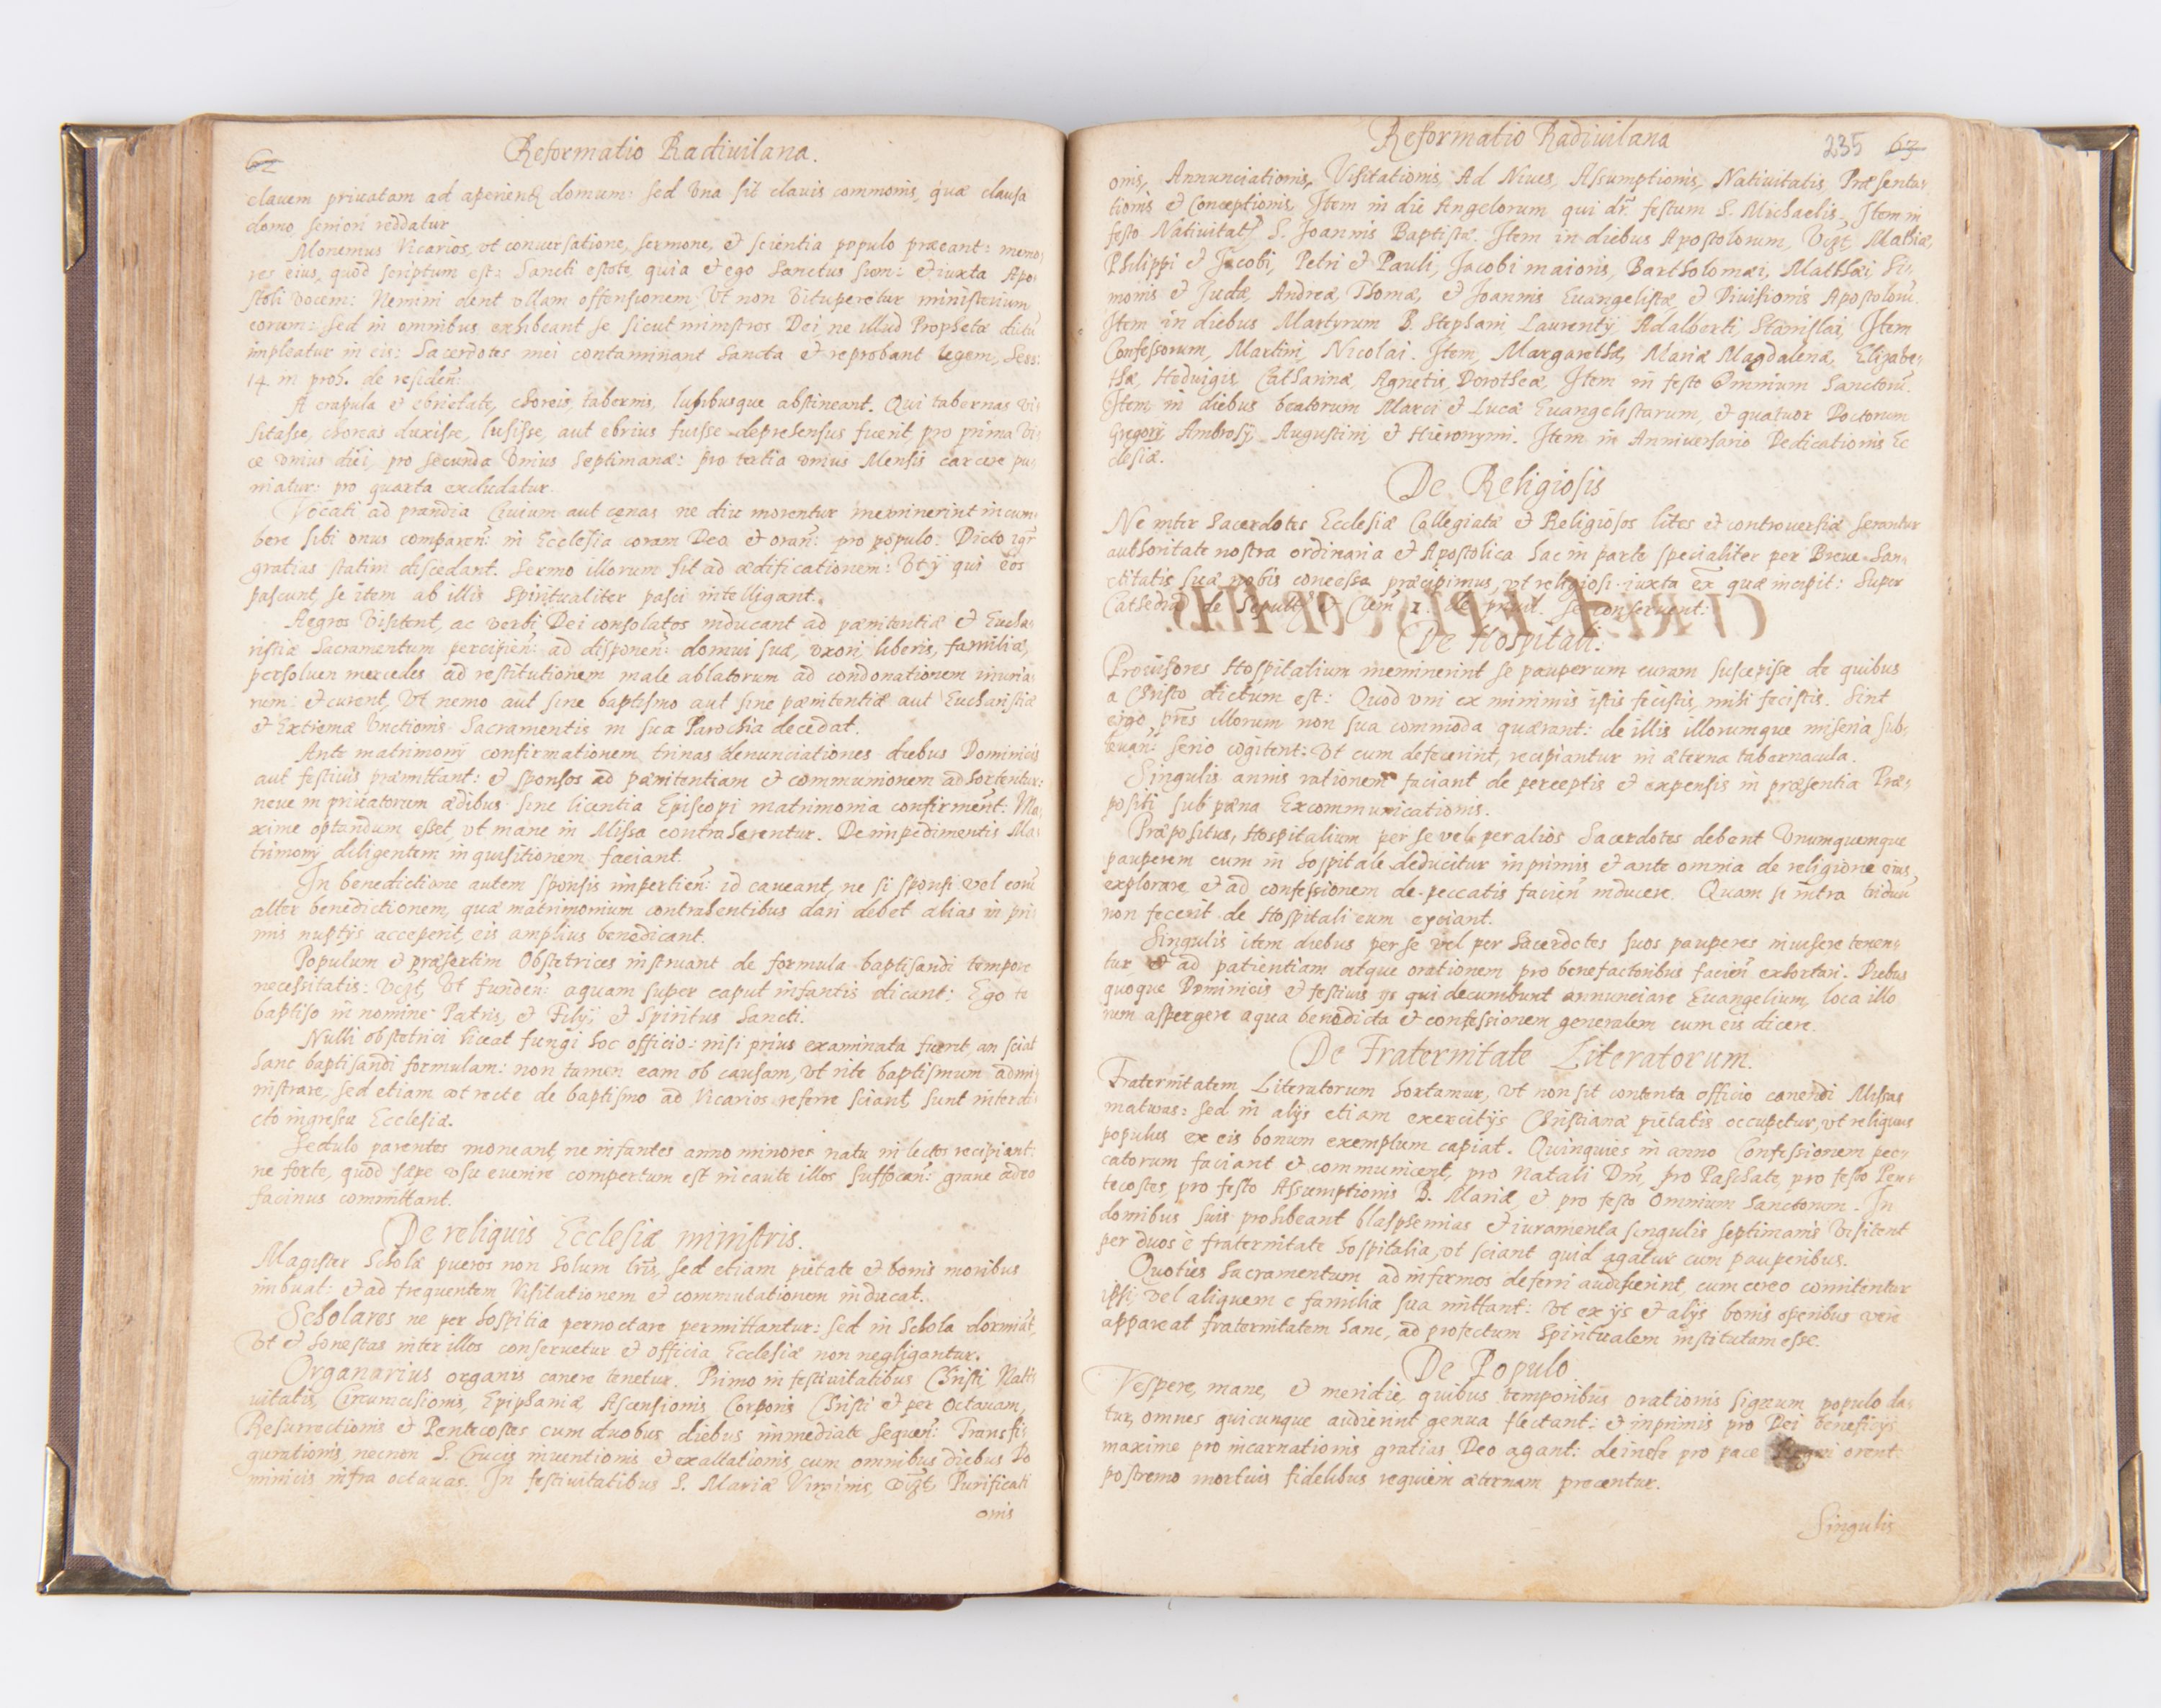 62
Reformatio Radiuilana.
clauem priuatam ad aperiend domum: sed vna sit clauis commonis, quæ clausa
domo seniori reddatur
Monemus Vicarios, vt conuersatione, sermone, et scientia populo præeant: memo,
res eius, quod scriptum est: Sancti estote, quia et ego Sanctus sum: et iuxta Apo,
stoli vocem: Nemini dent vllam offensionem, Vt non vituperetur ministerium
eorum: sed in omnibus exhibeant se sicut ministros Dei, ne illud Prophetæ dictu
impleatur in eis: Sacerdotes mei contaminant Sancta et reprobant legem, Sess:
14. in proh. de residen:
A crapula et ebrietate, choreis, tabernis, lusibusque abstineant. Qui tabernas vi,
sitasse, choreas duxisse, lusisse, aut ebrius fuisse deprehensus fuerit, pro prima vi,
ce vnius diei, pro secunda vnius Septimanæ: pro tertia vnius Mensis carcere pu,
niatur: pro quarta excludatur.
Vocati ad prandia Ciuium aut cęnas ne diu morentur meminerint incum,
bere sibi onus comparen: in Ecclesia coram Deo et oran: pro populo. Dicto igr
gratias statim discedant. Sermo illorum sit ad ædificationem: Vt ÿ qui eos
pascunt, se item ab illis spiritualiter pasci intelligant.
Aegros visitent, ac verbi Dei consolatos inducant ad pænitentiæ et Eucha,
ristiæ Sacramentum percipien: ad disponen: domui suæ, vxori, liberis, familiæ,
persoluen mercedes, ad restitutionem male ablatorum ad condonationem iniuria,
rum: et curent, Vt nemo aut sine baptismo aut sine pænitentiæ aut Eucharistiæ
et Extremæ Vnctionis Sacramentis in sua Parochia decedat.
Ante matrimonÿ confirmationem, trinas denunciationes diebus Dominicis
aut festiuis præmittant: et sponsos ad pænitentiam et communionem adhortentur:
neue in priuatorum ædibus sine licentia Episcopi matrimonia confirment. Ma,
xime optandum esset vt mane in Missa contraherentur. De impedimentis Ma,
trimonÿ diligentem inquisitionem faciant.
In benedictione autem sponsis impertien: id caueant, ne si sponsi vel eoru
alter benedictionem, quæ matrimonium contrahentibus dari debet alias in pri,
mis nuptÿs acceperit, eis amplius benedicant.
Populum et præsertim Obstetrices instruant de formula baptisandi tempore
necessitatis: Vizt, Vt funden: aquam super caput infantis dicant: Ego te
baptiso in nomine Patris, et Filÿ, et Spiritus Sancti.
Nulli obstetrici liceat fungi hoc officio: nisi prius examinata fuerit, an sciat
hanc baptisandi formulam: non tamen eam ob causam, vt rite baptismum admi,
nistrare, sed etiam vt recte de baptismo ad Vicarios referre sciant, sunt interdi,
cto ingressu Ecclesiæ.
Sedulo parentes moneant, ne infantes anno minores natu in lectos recipiant:
ne forte, quod sæpe vsu euenire compertum est incaute illos suffocan: graue adeo
facinus committant.
De reliquis Ecclesiæ ministris.
Magister Scholæ pueros non solum lris, sed etiam pietate et bonis moribus
imbuat: et ad frequentem Visitationem et commutationem inducat.
Scholares ne per hospitia pernoctare permittantur: sed in Schola dormiãt,
Vt et honestas inter illos conseruetur et officia Ecclesiæ non negligantur.
Organarius organis canere tenetur. Primo in festiuitatibus Christi, Nati,
uitatis, Circumcisionis, Epiphaniæ Ascensionis, Corporis Christi et per octauam,
Resurrectionis et Pentecostes cum duobus diebus immediate sequen: Transfi,
gurationis, necnon S. Crucis inuentionis, et exaltationis, cum omnibus diebus Do
minicis infra octauas. In festiuitatibus S. Mariæ Virginis, vizt, Purificati
onis
Reformatio Radiuilana
235 63
onis, Annunciationis, Visitationis, Ad Niues, Assumptionis, Natiuitatis, Præsenta,
tionis et Conceptionis, Item in die Angelorum qui dr festum S. Michaelis. Item in
festo Natiuitat S. Joannis Baptistæ. Item in diebus Apostolorum, Vizt, Mathiæ,
Philippi et Jacobi, Petri et Pauli, Jacobi maioris, Bartholomæi, Matthæi, Si,
monis et Judæ, Andreæ, Thomæ, et Joannis Euangelistæ, et Diuisionis Apostoloru.
Item in diebus Martyrum B. Stephani, Laurentÿ, Adalberti, Stanislai, Item
Confessorum, Martini, Nicolai. Item, Margarethæ, Mariæ Magdalenæ, Elizabe,
thæ, Heduigis, Catharinæ, Agnetis, Dorotheæ, Item in festo Omnium Sanctoru.
Item in diebus beatorum Marci et Lucæ Euangelistarum, et quatuor Doctorum
Gregorÿ, Ambrosÿ, Augustini, et Hieronymi. Item in Anniuersario Dedicationis Ec
clesiæ.
De Religiosis
Ne inter Sacerdotes Ecclesiæ Collegiatæ et Religiosos lites et controuersiæ serantur
authoritate nostra ordinaria et Apostolica hac in parte specialiter per Breue San,
ctitatis suæ nobis concessa, præcipimus, vt religiosi iuxta ex quæ incipit: Super
Cathedra de Sepult: et Clem 1. de priuil. se conseruent:
De Hospitali.
Prouisores Hospitalium meminerint se pauperum curam suscepisse de quibus
a Christo dictum est: Quod vni ex minimis istis fecistis, mihi fecistis. Sint
ergo pres illorum non sua commoda quærant: de illis illorumque miseria sub,
leuan: serio cogitent: Vt cum defecerint, recipiantur in æterna tabernacula.
Singulis annis rationem faciant de perceptis et expensis in præsentia Præ,
positi sub pæna Excommunicationis.
Præpositus, Hospitalium per se vel per alios Sacerdotes debent Vnumquemque
pauperem cum in hospitale deducitur inprimis et ante omnia de religione eius,
explorare et ad confessionem de peccatis facien inducere. Quam si intra triduu
non fecerit de Hospitali eum eÿciant.
Singulis item diebus per se vel per Sacerdotes suos pauperes inuisere tenen,
tur et ad patientiam atque orationem pro benefactoribus facien exhortari. Diebus
quoque Dominicis et festiuis ÿs qui decumbunt annunciare Euangelium, loca illo
rum aspergere aqua benedicta et confessionem generalem cum eis dicere.
De Fraternitate Literatorum.
Fraternitatem Literatorum hortamur, vt non sit contenta officio canendi Missas
maturas: sed in alÿs etiam exercitÿs Christianæ pietatis occupetur, vt reliquus
populus ex eis bonum exemplum capiat. Quinquies in anno Confessionem pec,
catorum faciant et communicent, pro Natali Dni, pro Paschate, pro festo Pen,
tecostes, pro festo Assumptionis B. Mariæ et pro festo Omnium Sanctorum. In
domibus suis prohibeant blasphemias et iuramenta singulis septimanis visitent
per duos è fraternitate hospitalia, vt sciant quid agatur cum pauperibus.
Quoties Sacramentum ad infirmos deferri audiuerint, cum cereo comitentur
ipsi, vel aliquem e familia sua mittant: Vt ex ÿs et alÿs bonis operibus vere
appareat fraternitatem hanc, ad profectum Spiritualem institutam esse.
De Populo
Vespere, mane, et meridie, quibus temporibus orationis signum populo da,
tur, omnes quicunque audierint genua flectant: et inprimis pro Dei beneficÿs
maxime pro incarnationis gratias Deo agant: deinde pro pace orent:
postremo mortuis fidelibus requiem æternam precentur.
Singulis